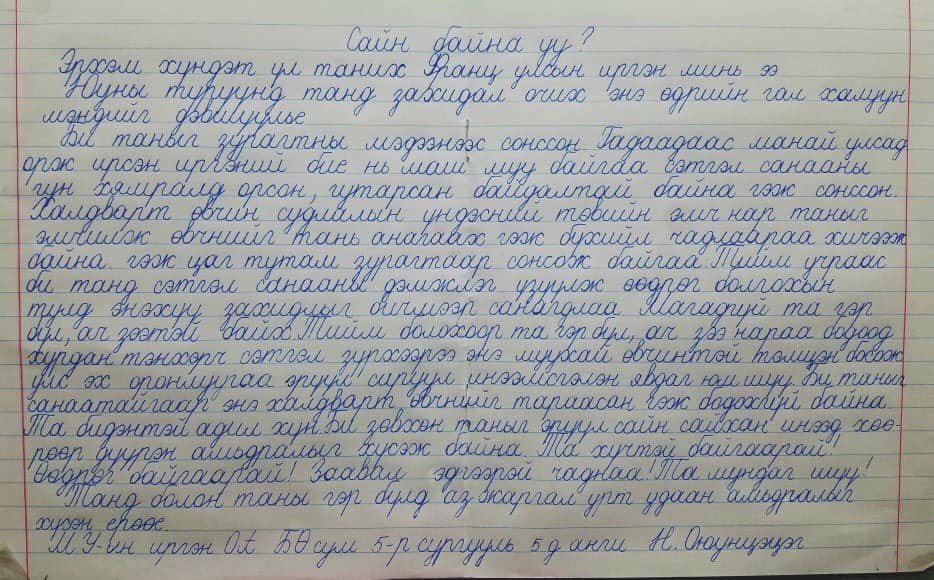 Сайн байна уу?
Эрхэм хүндэт үл таних Франц улсын иргэн минь ээ
Юуны түрүүнд танд захидал очих энэ өдрийн гал халуун
мэндийг дэвшүүлье
Би таныг зурагтны мэдээнээс сонссон. Гадаадаас манай улсад
орж ирсэн иргэний бие нь маш муу байгаа сэтгэл санааны
гүн хямралд орсон, гутарсан байдалтай байна гэж сонссон.
Халдварт өвчин судлалын үндэсний төвийн эмч нар таныг
эмчилж өвчнийг тань анагаах гэж бүхийл чадлаараа хичээж
байна. гэж цаг тутам зурагтаар сонсож байгаа. Тийм учраас
би танд сэтгэл санааны дэмжлэг үзүүлж өөдрөг болгохын
тулд энэхүү захидлыг бичмээр санагдлаа. Магадгүй та гэр
бүл, ач зээтэй байх. Тийм болохоор та гэр бүл, ач зээ нараа бодоод
хурдан тэнхэрч сэтгэл зүрхээрээ энэ муухай өвчинтэй тэмцэн босож
улс эх оронлуугаа эрүүл саруул инээмсэглэн явдаг юм шүү. Би таныг
санаатайгаар энэ халдварт өвчнийг тараасан гэж бодохгүй байна.
Та бидэнтэй адил хүн. Би зөвхөн таныг эрүүл сайн сайхан инээд хөө-
рөөр дүүрэн амьдралыг хүсэж байна. Та хүчтэй байгаарай!
Өөдрөг байгаарай! Заавал эдгээрэй чаднаа! Та мундаг шүү!
Танд болон таны гэр бүлд аз жаргал урт удаан амьдралыг
хүсэн ерөөе.
М.У-ын иргэн О.А БӨ сум 5-р сургууль 5д анги Н. Оюунцэцэг